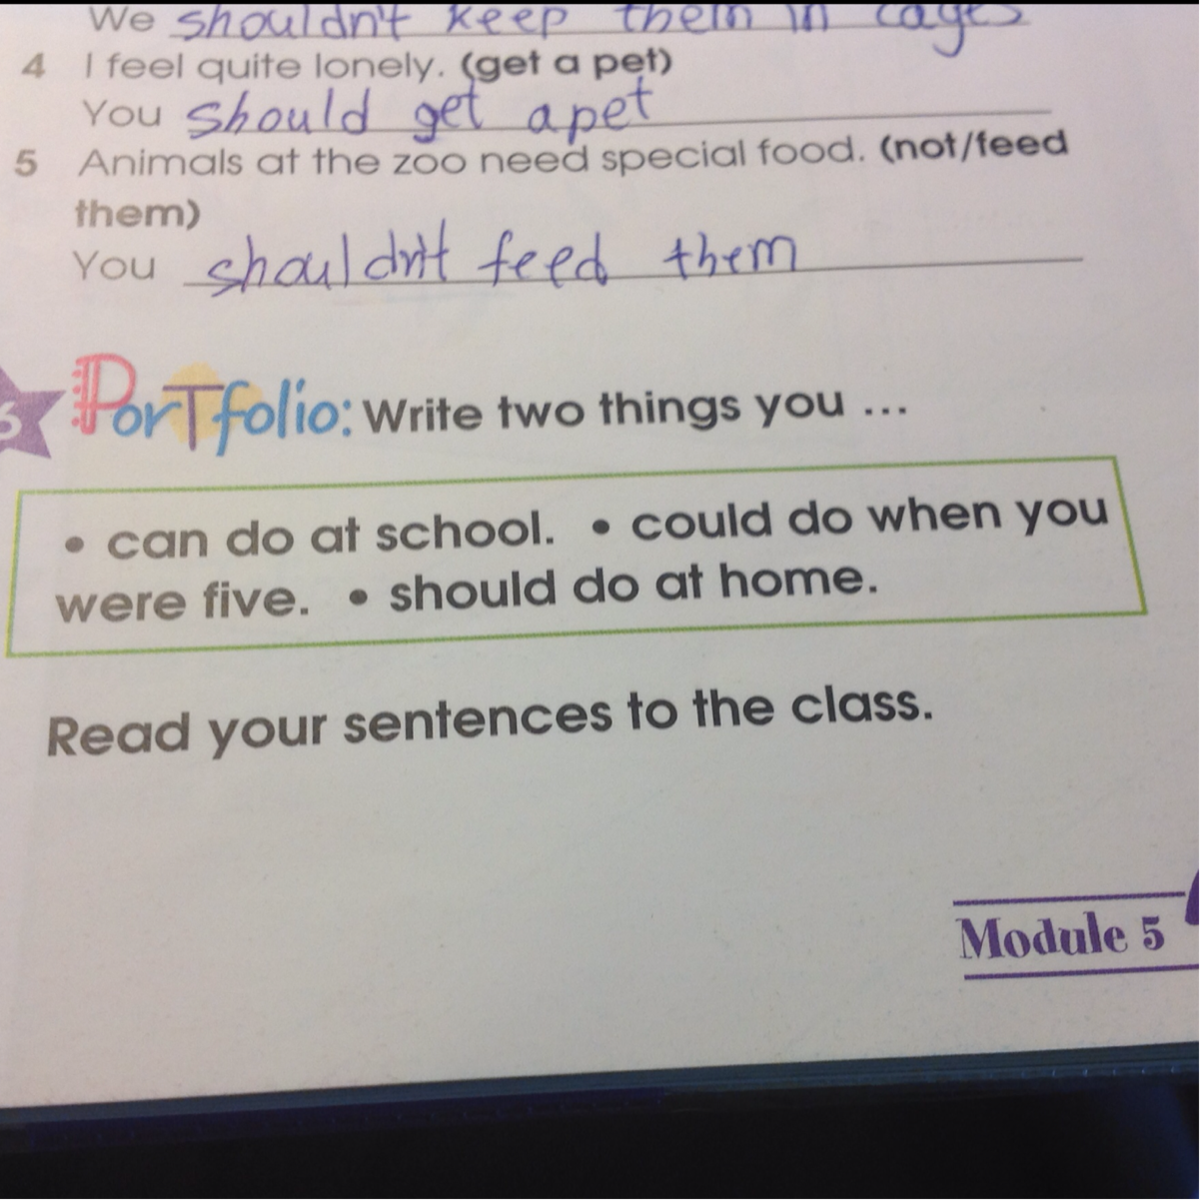 We shouldn't keep them in cages
4 I feel quite lonely. (get a pet)
You should get a pet
5 Animals at the zoo need special food. (not/feed
them)
You shouldn't feed them
6 Portfolio: Write two things you ...
• can do at school. • could do when you
were five. • should do at home.
Read your sentences to the class.
Module 5